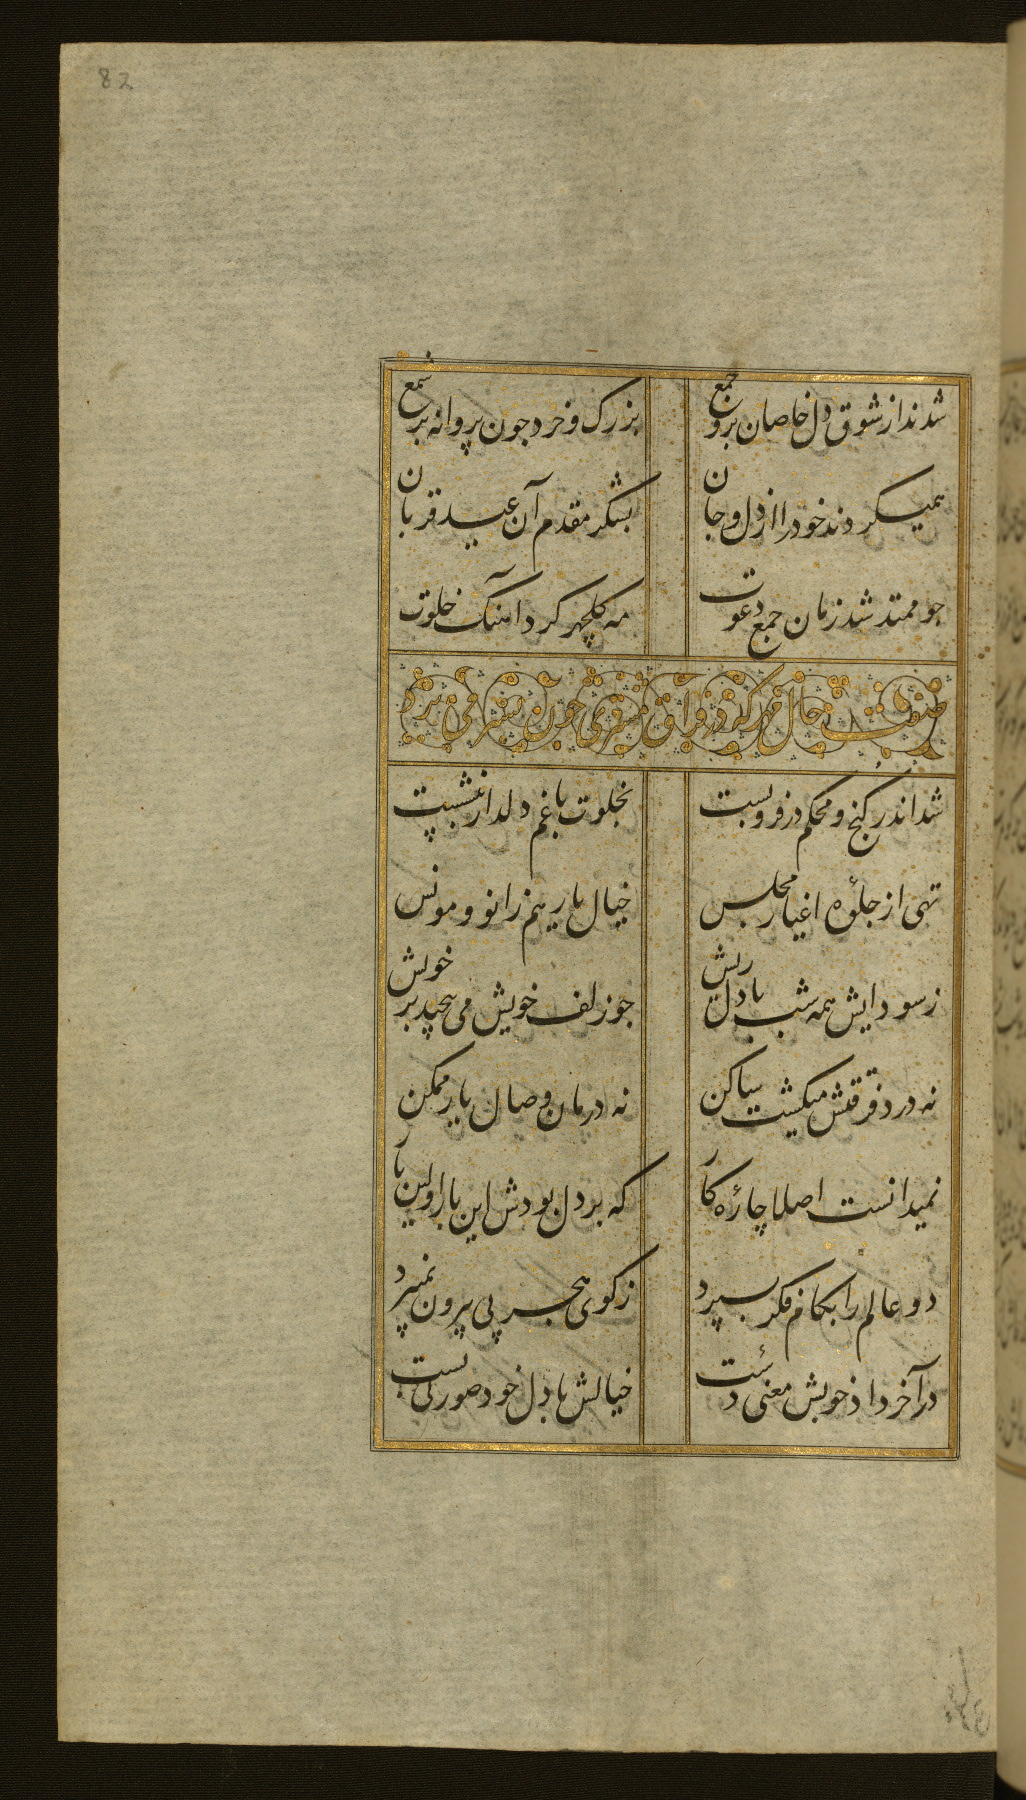 82
شدند از شوق دل خاصان برو جمع
بزرک و خرد جون پروانه بر شمع
همیکردند خود را از دل و جان
بشکر مقدم آن عید قربان
جو ممتد شد زمان جمع دعوت
مه کلچهر کرد آهنک خلوت
صفت حال مهر که در فراق مشتری خون بسر می برد
شد اندر کنج و محکم در فرو بست
بخلوت با غم دلدار بنشست
تهی از جلوه اغیار مجلس
خیال یار هم زانو و مونس
ز سودایش همه شب با دل ریش
جو زلف خویش می پیچید بر خویش
نه درد فرقتش میکشت ساکن
نه درمان وصال یار ممکن
نمیدانست اصلا چاره کار
که بر دل بودش این بار اولین بار
دو عالم را بکام فکر بسپرد
ز کوی هجر پی بیرون نمیبرد
در آخر داد خویش معنی دست
خیالش با دل خود صورتی بست